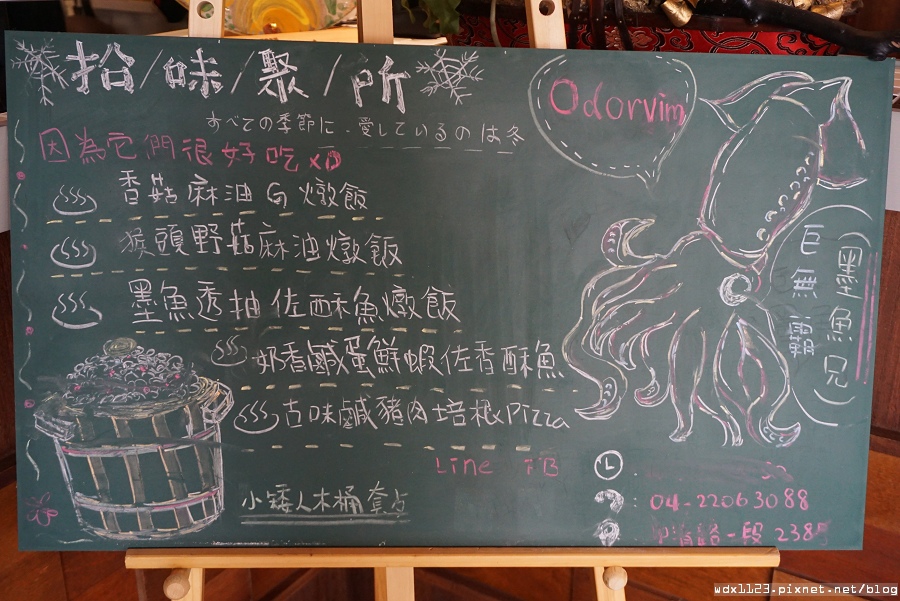 拾/味/聚/所
すべての季節に、愛しているのは冬
因為它們很好吃XD
香菇麻油G燉飯
猴頭野菇麻油燉飯
墨魚透抽佐酥魚燉飯
奶香鹹蛋鮮蝦佐香酥魚
古味鹹豬肉培根Pizza
Line FB
小矮人木桶套占
Odorvim
墨魚兄
巨無霸
: 04-22063088
路一段 238號
wdx1123.pixnet.net/blog